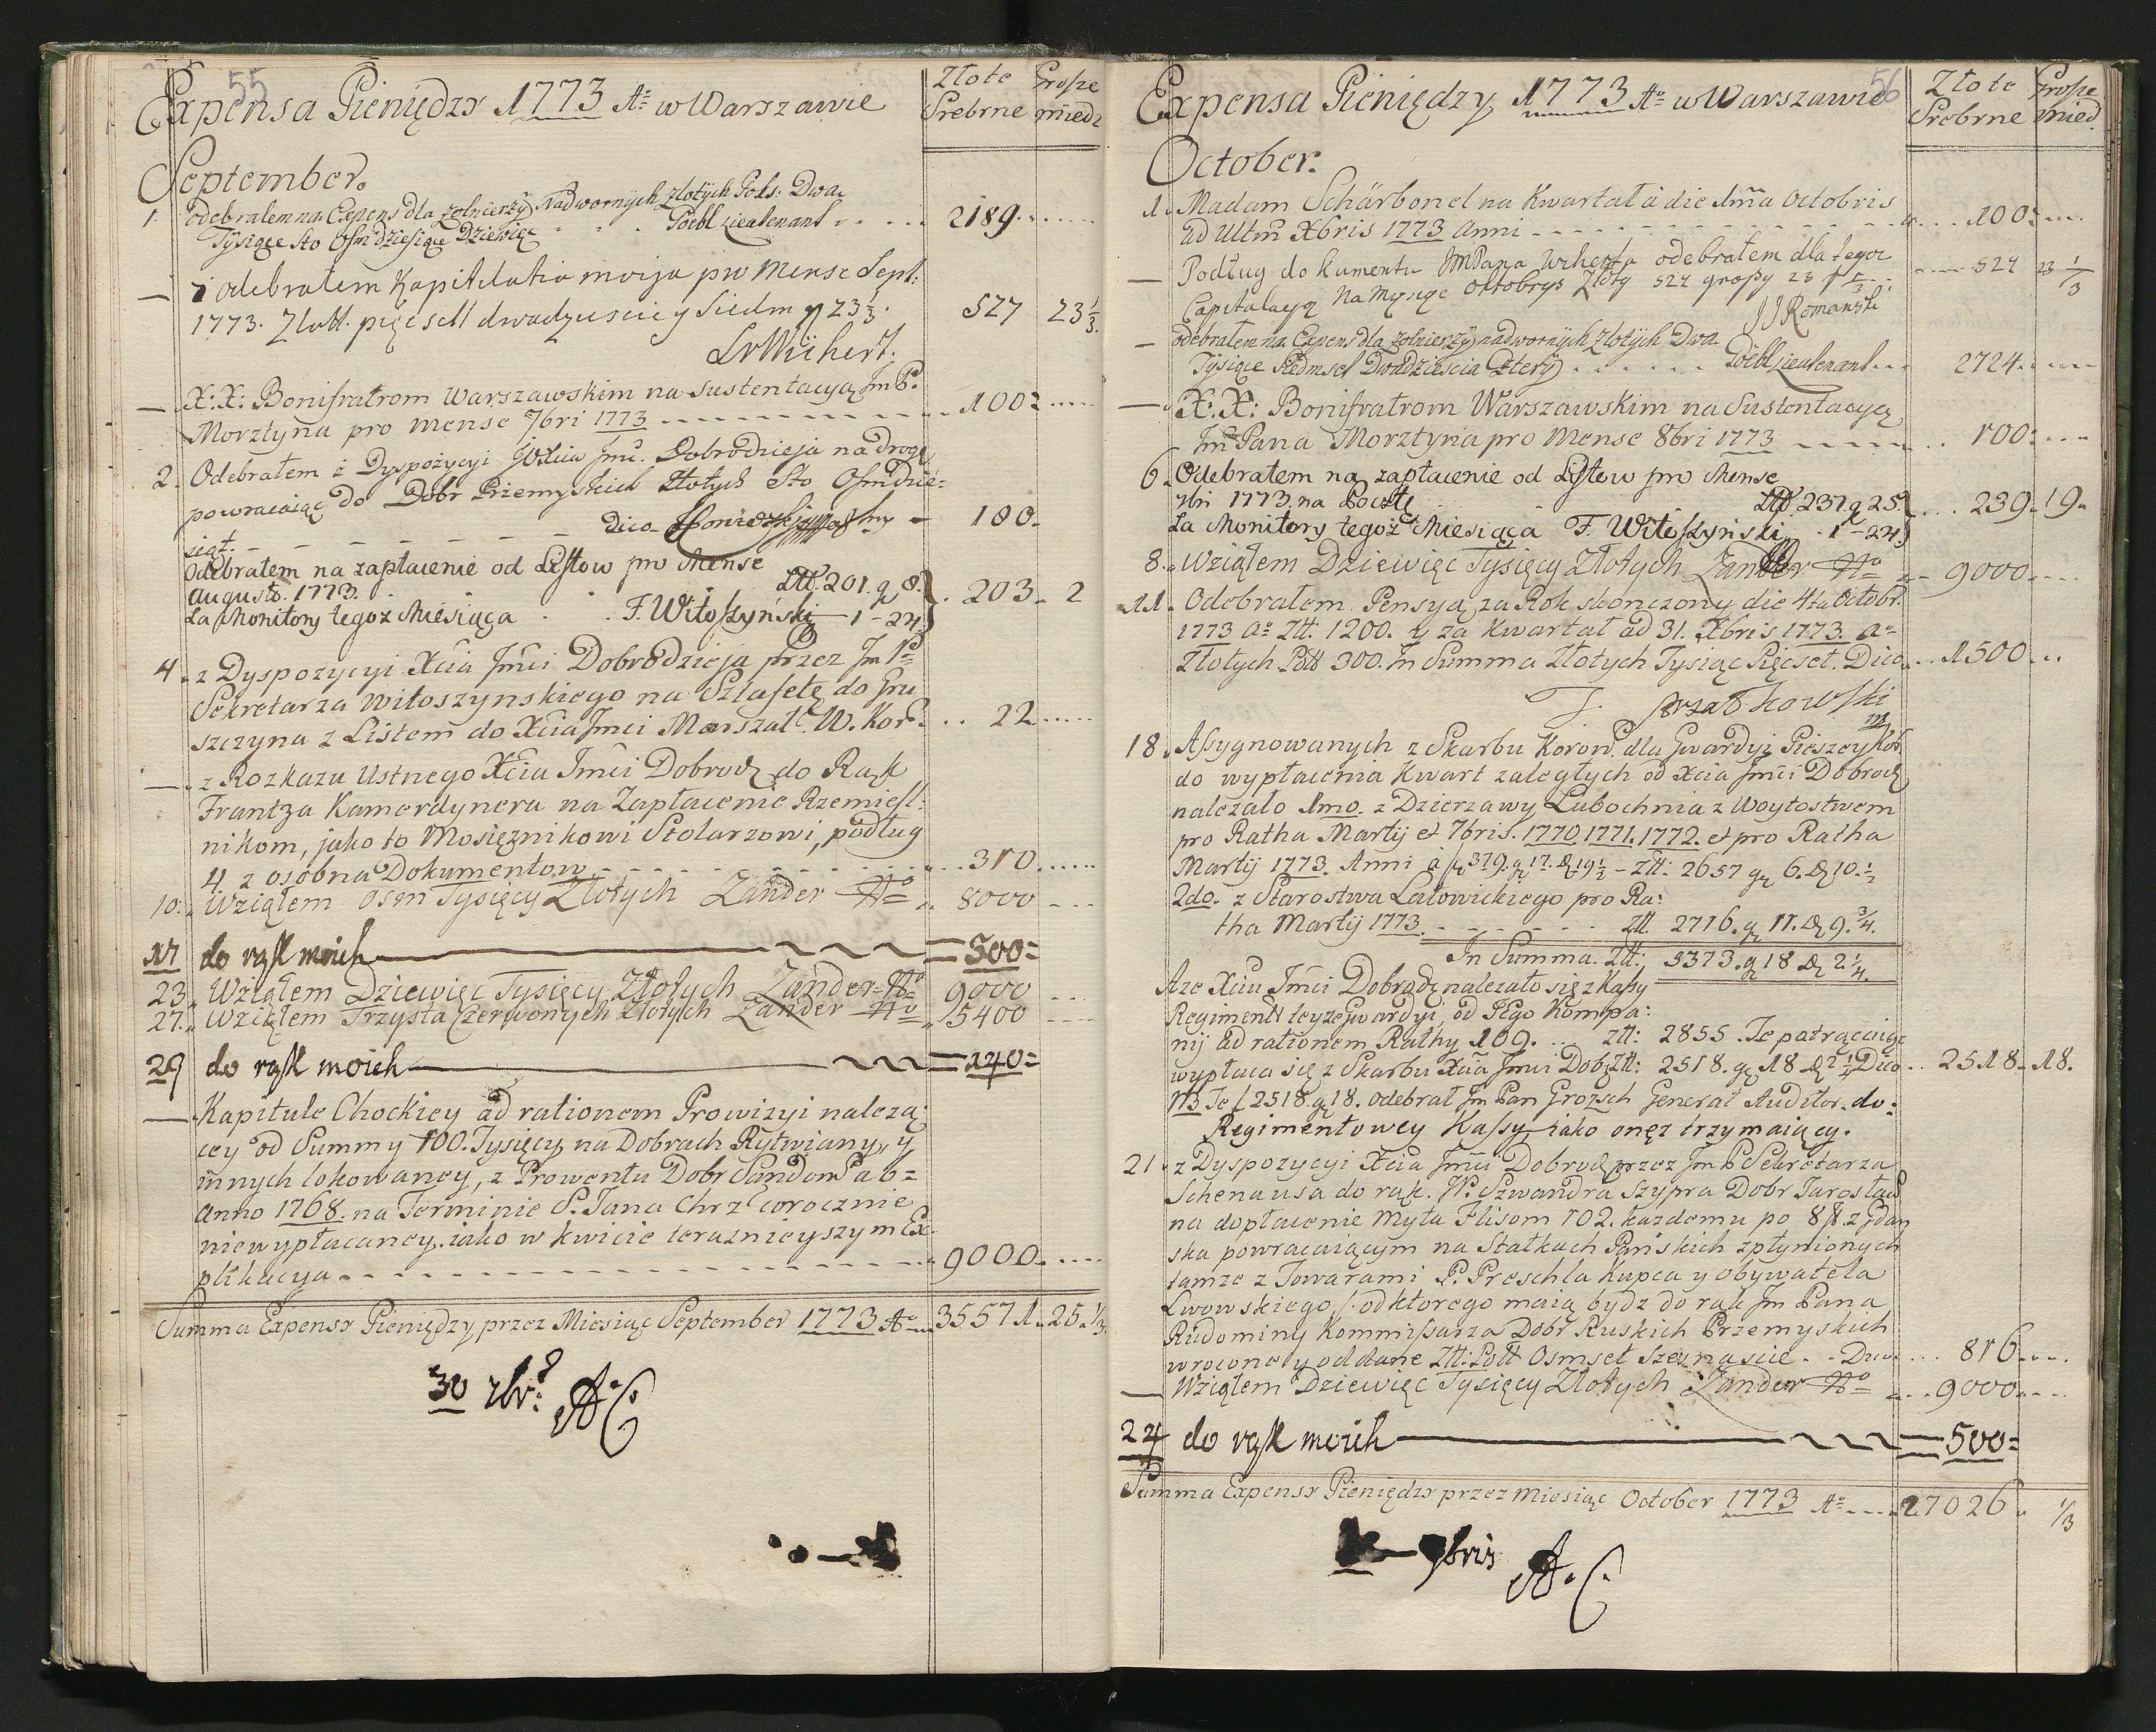 55
Expensa Pieniędzy 1773 Aº w Warszawie
Złote Srebrne
Grosze miedz
September.
1. odebralem na Expens dla zolnierzÿ Nadwornÿch Zlotÿch Pols: Dwa
Tÿsiące Sto Osmdziesiąt Dziewięc . . . Lieutenant . . . . 2189. . . . .
— odebralem Kapitulatia moija pro Mense Sept:
1773. Zlott. pięcsett dwadziescie y Siedm g 23 1/3. 527 23 1/3.
LvWichert.
— X: X: Bonifratrom Warszawskim na Sustentacyą Jm P.
Morztyna pro mense 7bri 1773 - - - - - - - 100: . . . .
2. Odebrałem z Dyspozycyi JOXcia Jmci. Dobrodzieja na drogę
powracaiąc do Dobr Przemyskich Złotych Sto Osmdzie=
siąt. - - - - - - - dico 180.
Odebrałem na zapłacenie od Listow pro Mense
Augusto. 1773. . . . . 201. g 8. 203. 2
Za Monitory tegoż Miesiąca . . F. Witoszyński — 1 - 24
4. z Dyspozycyi Xcia Jmci Dobrodzieja przez Jm P.
Sekretarza Witoszynskiego na Sztafetę do Gru
szczyna z Listem do Xcia Jmci Marszał: W. Kor: . . 22 . . . . .
— z Rozkazu Ustnego Xcia Jmci Dobrodz do Rąk
Frantza Kamerdynera na Zapłacenie Rzemiesl:
nikom, jako to Mosięznikowi Stolarzowi, podług
4 z osobna Dokumentow - - - - - - - 310. . . . .
10. Wziąłem Osm Tysięcy Złotych Zander 8000 - - -
17 do rąk moich ——— = 500=
23. Wziąłem Dziewięc Tysięcy Złotych Zander 9000 - - -
27. Wziąłem Trzysta Czerwonych Złotych Zander 5400 - - -
29 do rąk moich ——— = 140=
— Kapitule Chockiey ad rationem Prowizyi nalezą:
cey od Summy 100. Tysięcy na Dobrach Rytwiany, y
innych lokowaney, z Prowentu Dobr Sandom ab=
Anno 1768. na Terminie S. Jana Chrz: corocznie
niewypłacaney. iako w kwicie teraznieyszym Ex:
plikacya - - - - - - - - 9000. . . . .
Summa Expensy Pieniędzy przez Miesiąc September 1773 Aº 35571. 25. 1/3.
30 7br: AC
56
Expensa Pieniędzy 1773 Aº w Warszawie
Złote Srebrne
Grosze mied
October.
1. Madam Schärbonel na Kwartał à die 1mâ Octobris
ad Ultm Xbris 1773 Anni - - - - - - - 100: . . .
— Podług dokumentu JmPana Wicherta odebrałem dla tegoż
Capitulacyą Na Mysiąc Octobrys Złoty 527 groszy 23 1/3 . . . 527 23 1/3
JJ Romanski
— odebralem na Expens dla zolnierzÿ nadwornÿch Zlotÿch Dwa
Tÿsiące Siedmset Dwadziescia Czterÿ . . . . . Lieutenant . . . 2724. . . .
— X: X: Bonifratrom Warszawskim na Sustentacyą
Jm Pana Morztyna pro Mense 8bri 1773 - - - - 100: . . .
6. Odebrałem na zapłacenie od Listow pro Mense
7bri 1773. na Pocztę 237. g 25. . . . 239. 19.
Za Monitory tegoż Miesiąca F. Witoszyński . 1 - 24
8. Wziąłem Dziewięc Tysięcy Złotych Zander 9000 . . . .
11. Odebrałem Pensyą za Rok skonczony die 4ta Octobr:
1773 Aº Ztt. 1200. y za Kwartał ad 31. Xbris 1773. Aº
Złotych Poll 300. In Summa Złotych Tysiąc Pięcset. Dico . . 1500 . . .
18. Assygnowanych z Skarbu Koron. dla Gwardyi Pieszey Kor.
do wypłacenia Kwart zaległych od Xcia Jmci Dobrodz
nalezało 1mo. z Dzierzawy Lubochnia z Woytostwem
pro Ratha Martij et 7bris. 1770. 1771. 1772. et pro Ratha
Martij 1773. Anni à 379. g 17. 19 1/2 - Ztt: 2657 g 6. 10. 1/2
2do. z Starostwa Latowickiego pro Ra:
tha Martij 1773. - - - - - Ztt 2716. g 11. 9. 3/4.
In Summa. Ztt: 5373. g 18 2. 1/4.
Aze Xciu Jmci Dobrodz nalezało się z Kassy
Regiment teyze Gwardyi, od Jego Kompa:
nij ad rationem Rathy 109. . . Ztt: 2855. Te potrąciwszy
wypłaca się z Skarbu Xcia Jmci Dob Ztt: 2518. g 18 2 1/4 Dico . . 2518. 18.
NB. Te 2518. g 18. odebrał Jm Pan Grozsch Generał Auditor. do:
Regimentowey Kassy, iako onęz trzymaiący.
21. z Dyspozycyi Xcia Jmci Dobrodz przez Jm P Sekretarza
Schenausa do rąk. W. Szwandra Szypra Dobr Jarosław
na dopłacenie Myta Flisom 102. kazdemu po 8 z Gdan
ska powracaiącym na Statkach Pańskich zpłynionych
tamze z Towarami P. Preschla Kupca y Obywatela
Lwowskiego, od ktorego maią bydz do rąk Jm Pana
Rudominy Kommissarza Dobr Ruskich Przemyskich
wrocone y oddane Ztt: Poll Osmset Szesnascie - - Dico . . . 816. . . .
— Wziąłem Dziewięc Tysięcy Złotych Zander . . . 9000 . . . .
24 do rąk moich ——— = 500=
Summa Expensy Pieniędzy przez Miesiąc October 1773 Aº 27026. 1/3
9bris AC